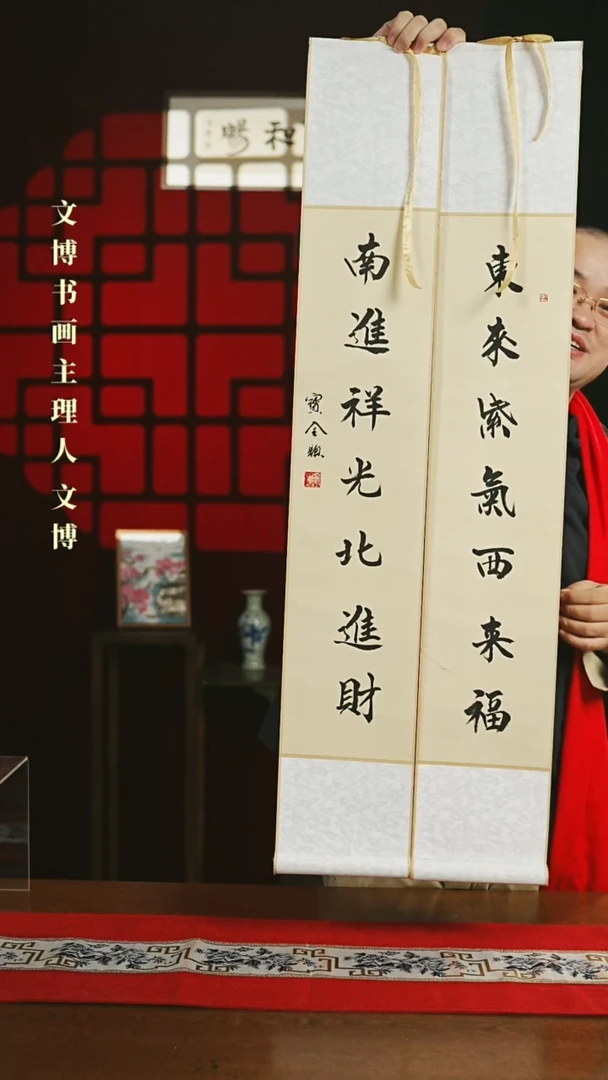 東來紫氣西来福
南進祥光北進財
文博书画主理人文博
和暢